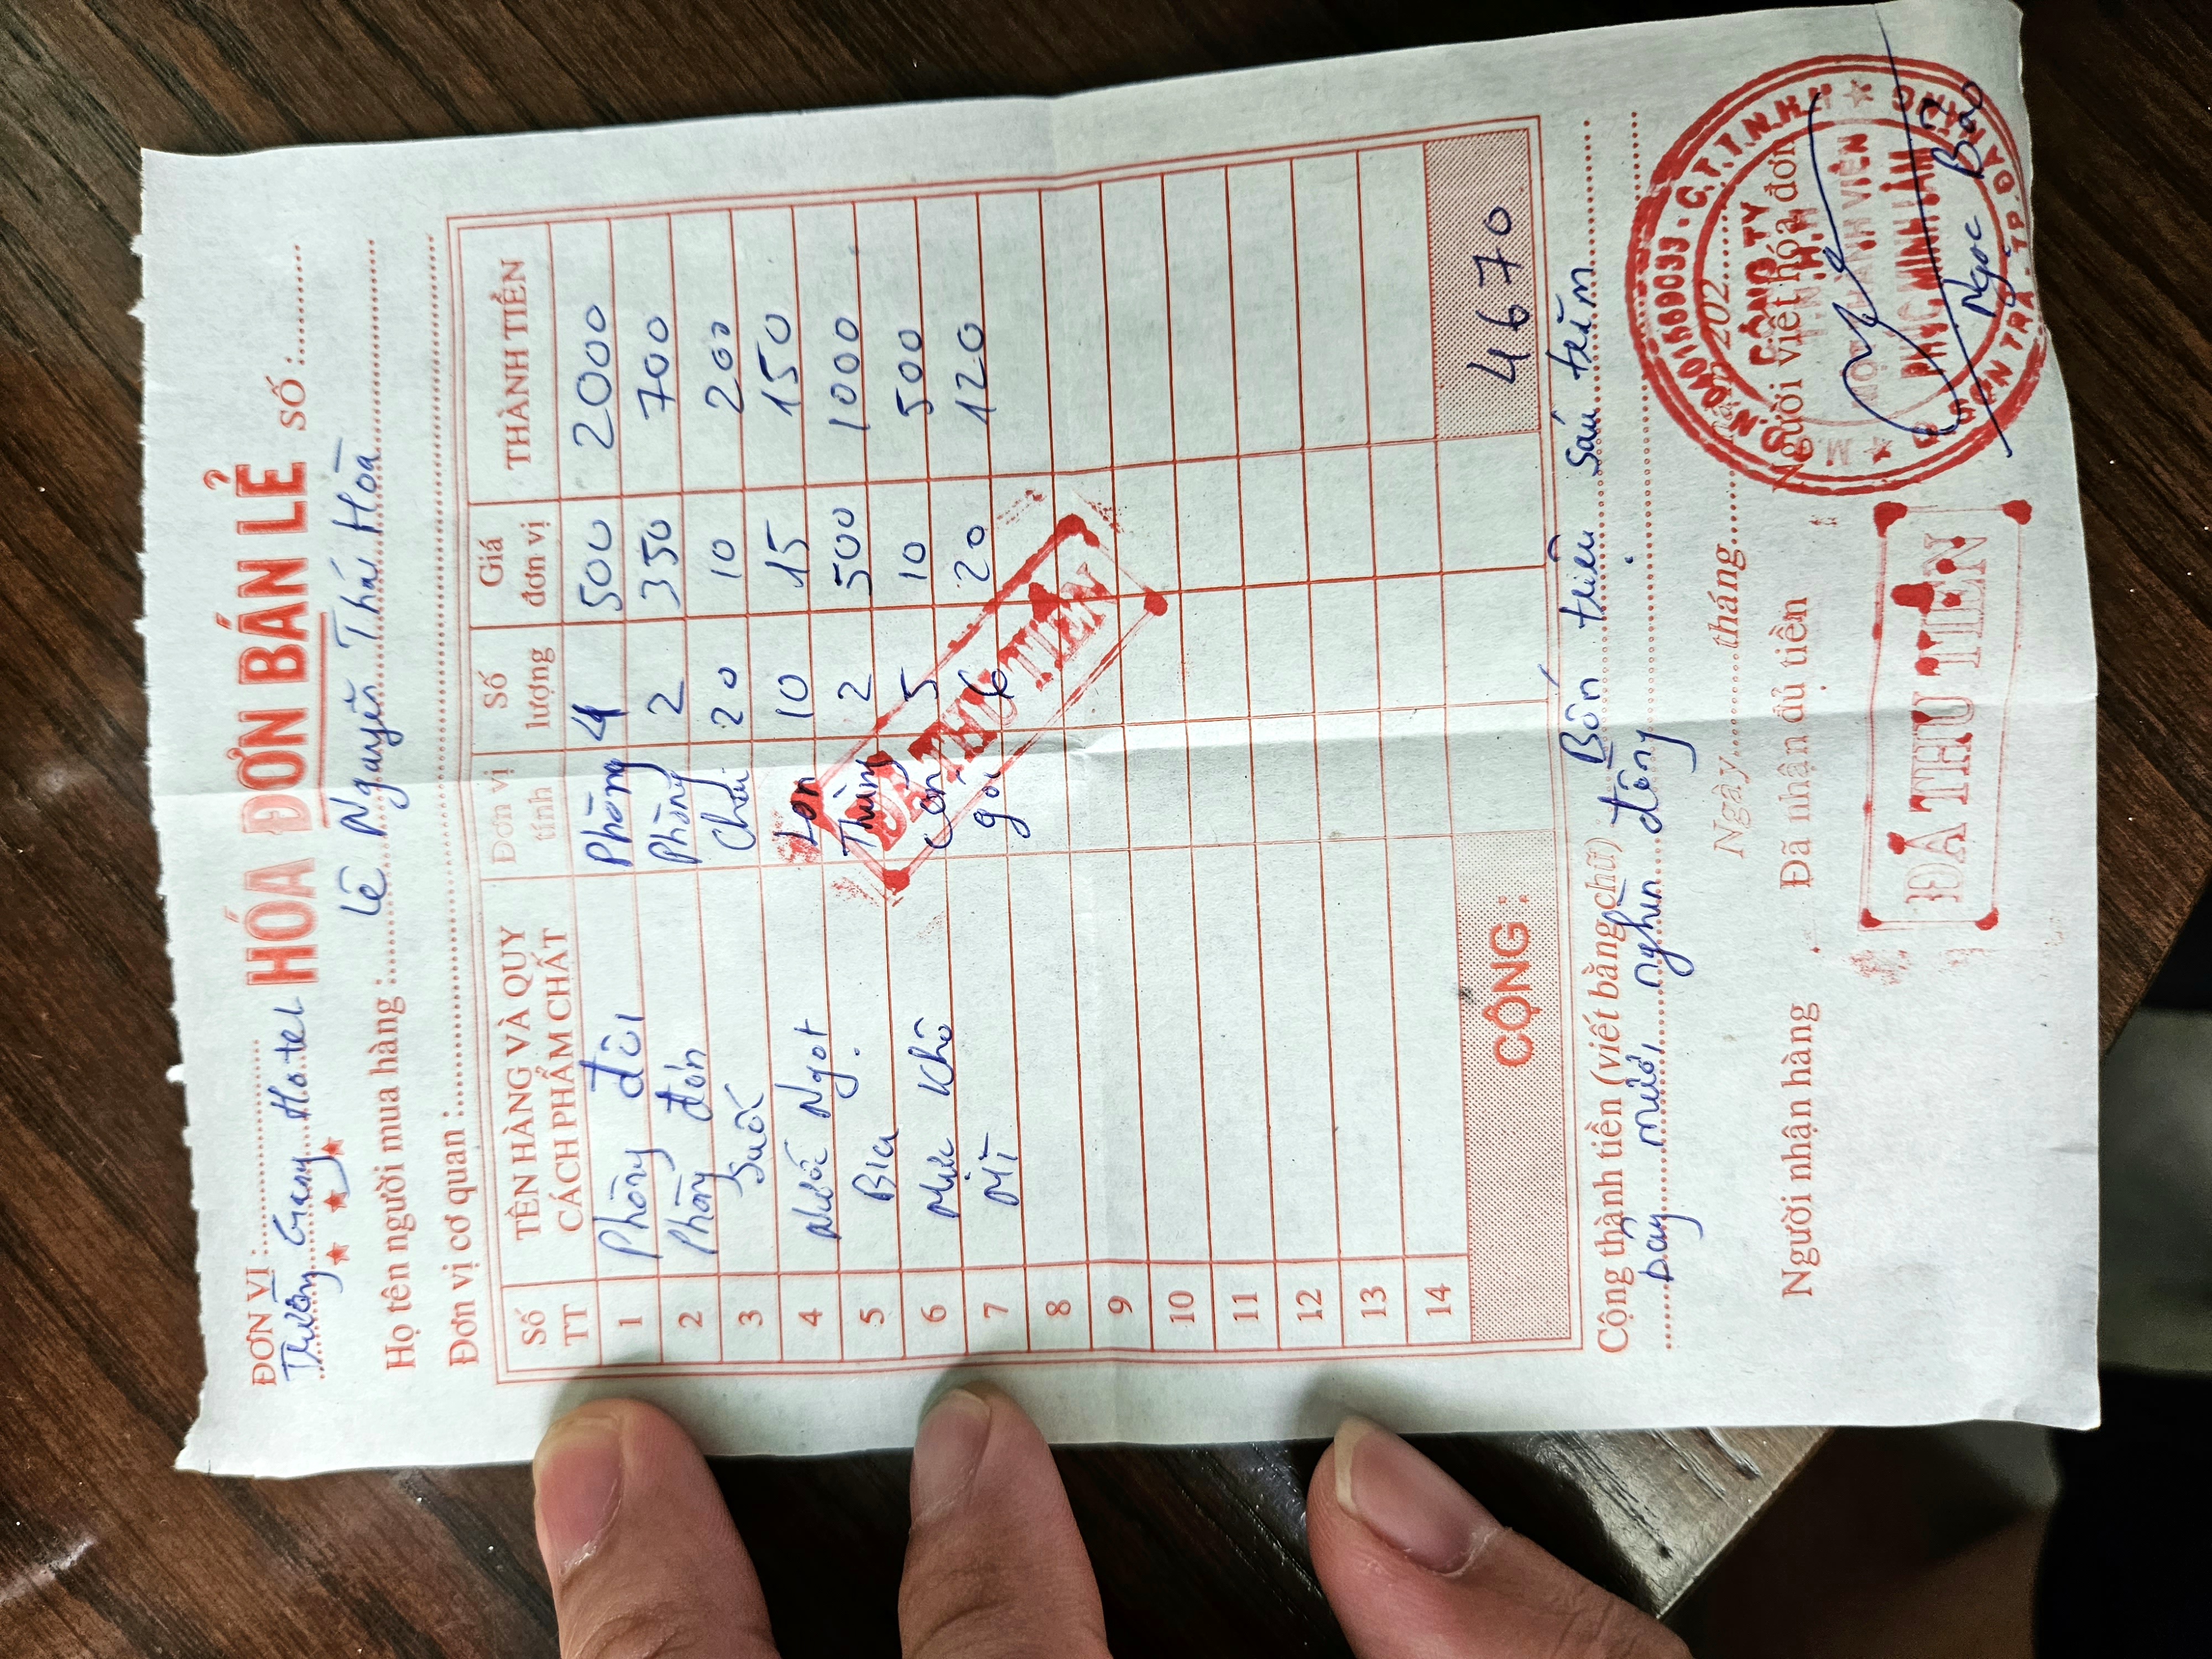 ĐƠN VỊ :
HÓA ĐƠN BÁN LẺ SỐ :
Trường Giang Hotel
Họ tên người mua hàng : Lê Nguyễn Thái Hoà
Đơn vị cơ quan :
Số TT TÊN HÀNG VÀ QUY CÁCH PHẨM CHẤT Đơn vị tính Số lượng Giá đơn vị THÀNH TIỀN
1 Phòng đôi Phòng 4 500 2000
2 Phòng đơn Phòng 2 350 700
3 Suối Chai 20 10 200
4 Nước Ngọt Lon 10 15 150
5 Bia Thùng 2 500 1000
6 Mực Khô Con 5 10 500
7 Mì gói 6 20 120
8
9
10
11
12
13
14
ĐÃ THU TIỀN
CỘNG : 4670
Cộng thành tiền (viết bằng chữ) : Bốn triệu sáu trăm
bảy mươi nghìn đồng
Ngày tháng năm 202
Người nhận hàng Đã nhận đủ tiền Người viết hóa đơn
ĐÃ THU TIỀN
M.S.D.N: 0401569033 - C.T.T.N.H.H
CÔNG TY
T.N.H.H
MỘT THÀNH VIÊN
PHÚC MINH LÂM
Q. SƠN TRÀ - TP. ĐÀ NẴNG
Ngọc Bảo